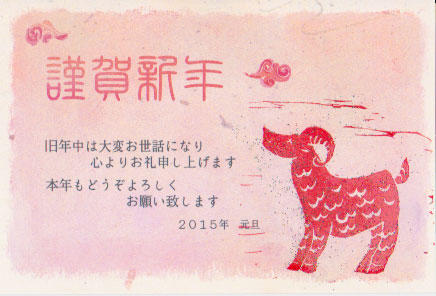 謹賀新年
旧年中は大変お世話になり
心よりお礼申し上げます
本年もどうぞよろしく
お願い致します
2015年 元旦